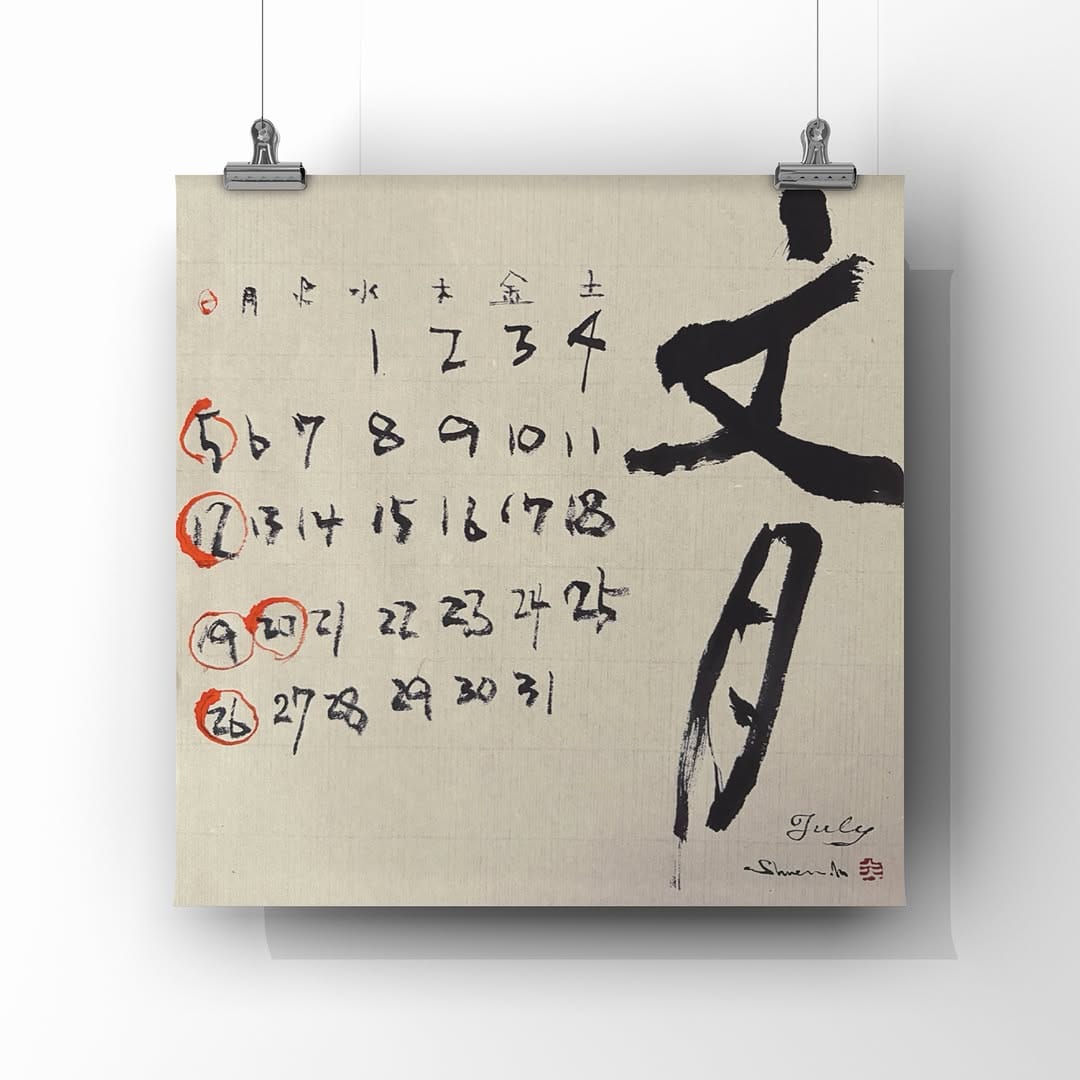 日 月 火 水 木 金 土
1 2 3 4
5 6 7 8 9 10 11
12 13 14 15 16 17 18
19 20 21 22 23 24 25
26 27 28 29 30 31
文月
July